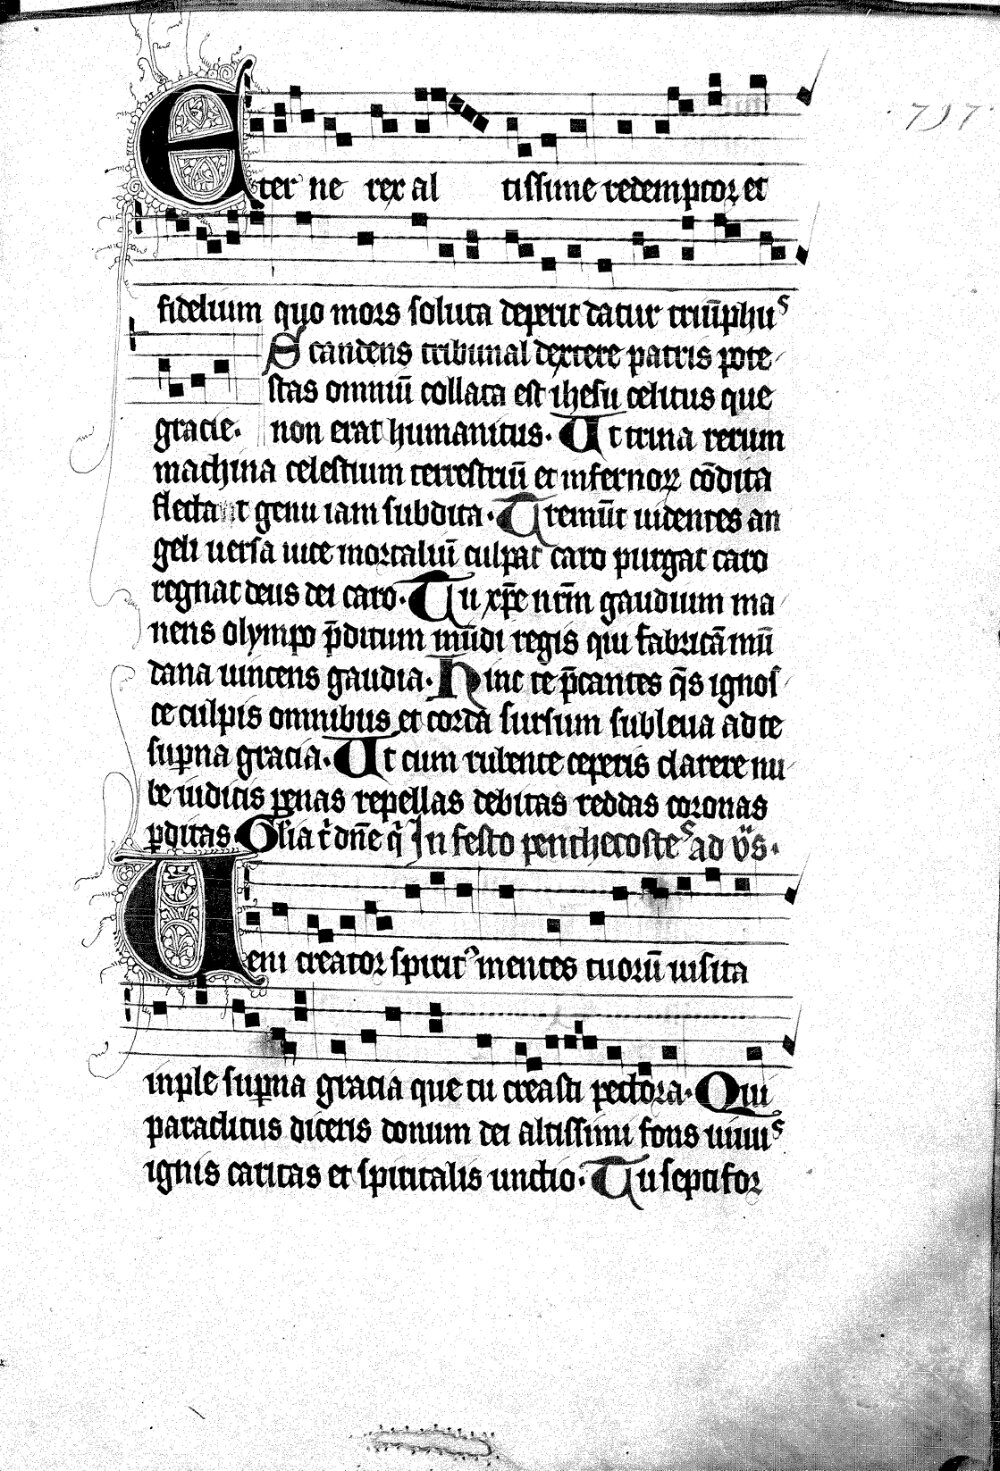 ·797·
Eter ne rex al tissime redemptor et
fidelium quo mors soluta deperit datur triūphuˢ
Scandens tribunal dextere patris pote
stas omniū collata est ihesu celitus que
gracie· non erat humanitus· Ut trina rerum
machina celestium terrestriū et infernoꝝ cōdita
flectant genu iam subdita· Tremūt uidentes an
geli uersa uice mortaliū culpat caro purgat caro
regnat deus dei caro· Tu xp̄e nr̄m gaudium ma
nens olympo p̄ditum mūdi regis qui fabricā mū
dana uincens gaudia· Hinc te p̄cantes q̄s ignos
ce culpis omnibus et corda sursum subleua ad te
suꝑna gracia· Ut cum rubente ceperis clarere nu
be iudicis penas repellas debitas reddas coronas
ꝑditas· Glīa t̄ dn̄e q̄ In festo penthecosteˢ ad v̄s·
Ueni creator spiritꝰ mentes tuorū uisita
inple suꝑna gracia que tu creasti pectora· Qui
paraclitus diceris donum dei altissimi fons uiuuˢ
ignis caritas et spiritalis unctio· Tu septifor